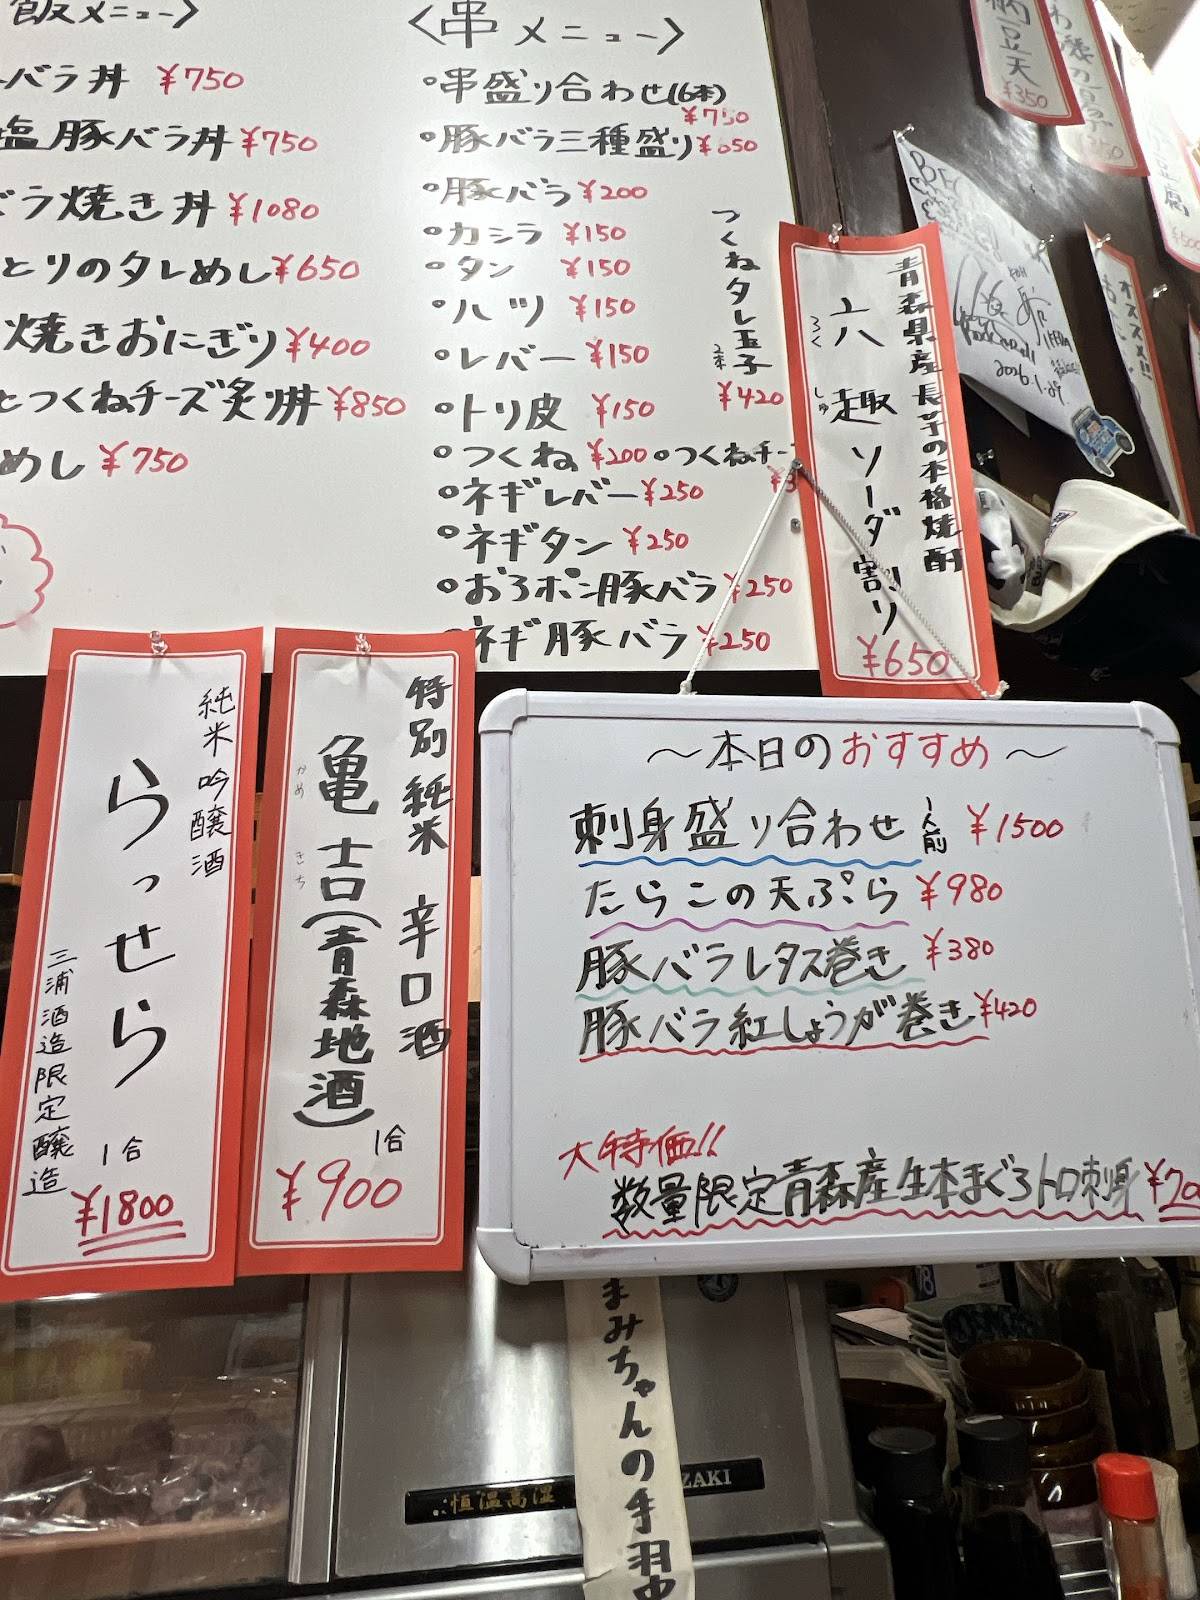 飯メニュー〉
バラ丼 ¥750
塩豚バラ丼 ¥750
バラ焼き丼 ¥1080
とりのタレめし ¥650
焼きおにぎり ¥400
とつくねチーズ炙り丼 ¥850
めし ¥750
〈串メニュー〉
串盛り合わせ(6本) ¥750
豚バラ三種盛り
豚バラ ¥200
カシラ ¥150
タン ¥150
ハツ ¥150
レバー ¥150
トリ皮 ¥150
つくね ¥200 つくねチー
ネギレバー ¥250
ネギタン ¥250
おろポン豚バラ ¥250
ネギ豚バラ ¥250
つくねタレ玉子
2本
¥420
青森県産長芋の本格焼酎
六趣ソーダ割り
ろく しゅ
¥650
納豆天
¥350
オススメ!!
2026.1.
純米吟醸酒
らっせら
三浦酒造限定醸造
1合
¥1800
特別純米 辛口酒
亀吉(青森地酒)
かめ きち
1合
¥900
〜本日のおすすめ〜
刺身盛り合わせ 1人前 ¥1500
たらこの天ぷら ¥980
豚バラレタス巻き ¥380
豚バラ紅しょうが巻き ¥420
大特価!!
数量限定青森産生本まぐろトロ刺身
まみちゃんの手羽中
恒温高湿
ZAKI